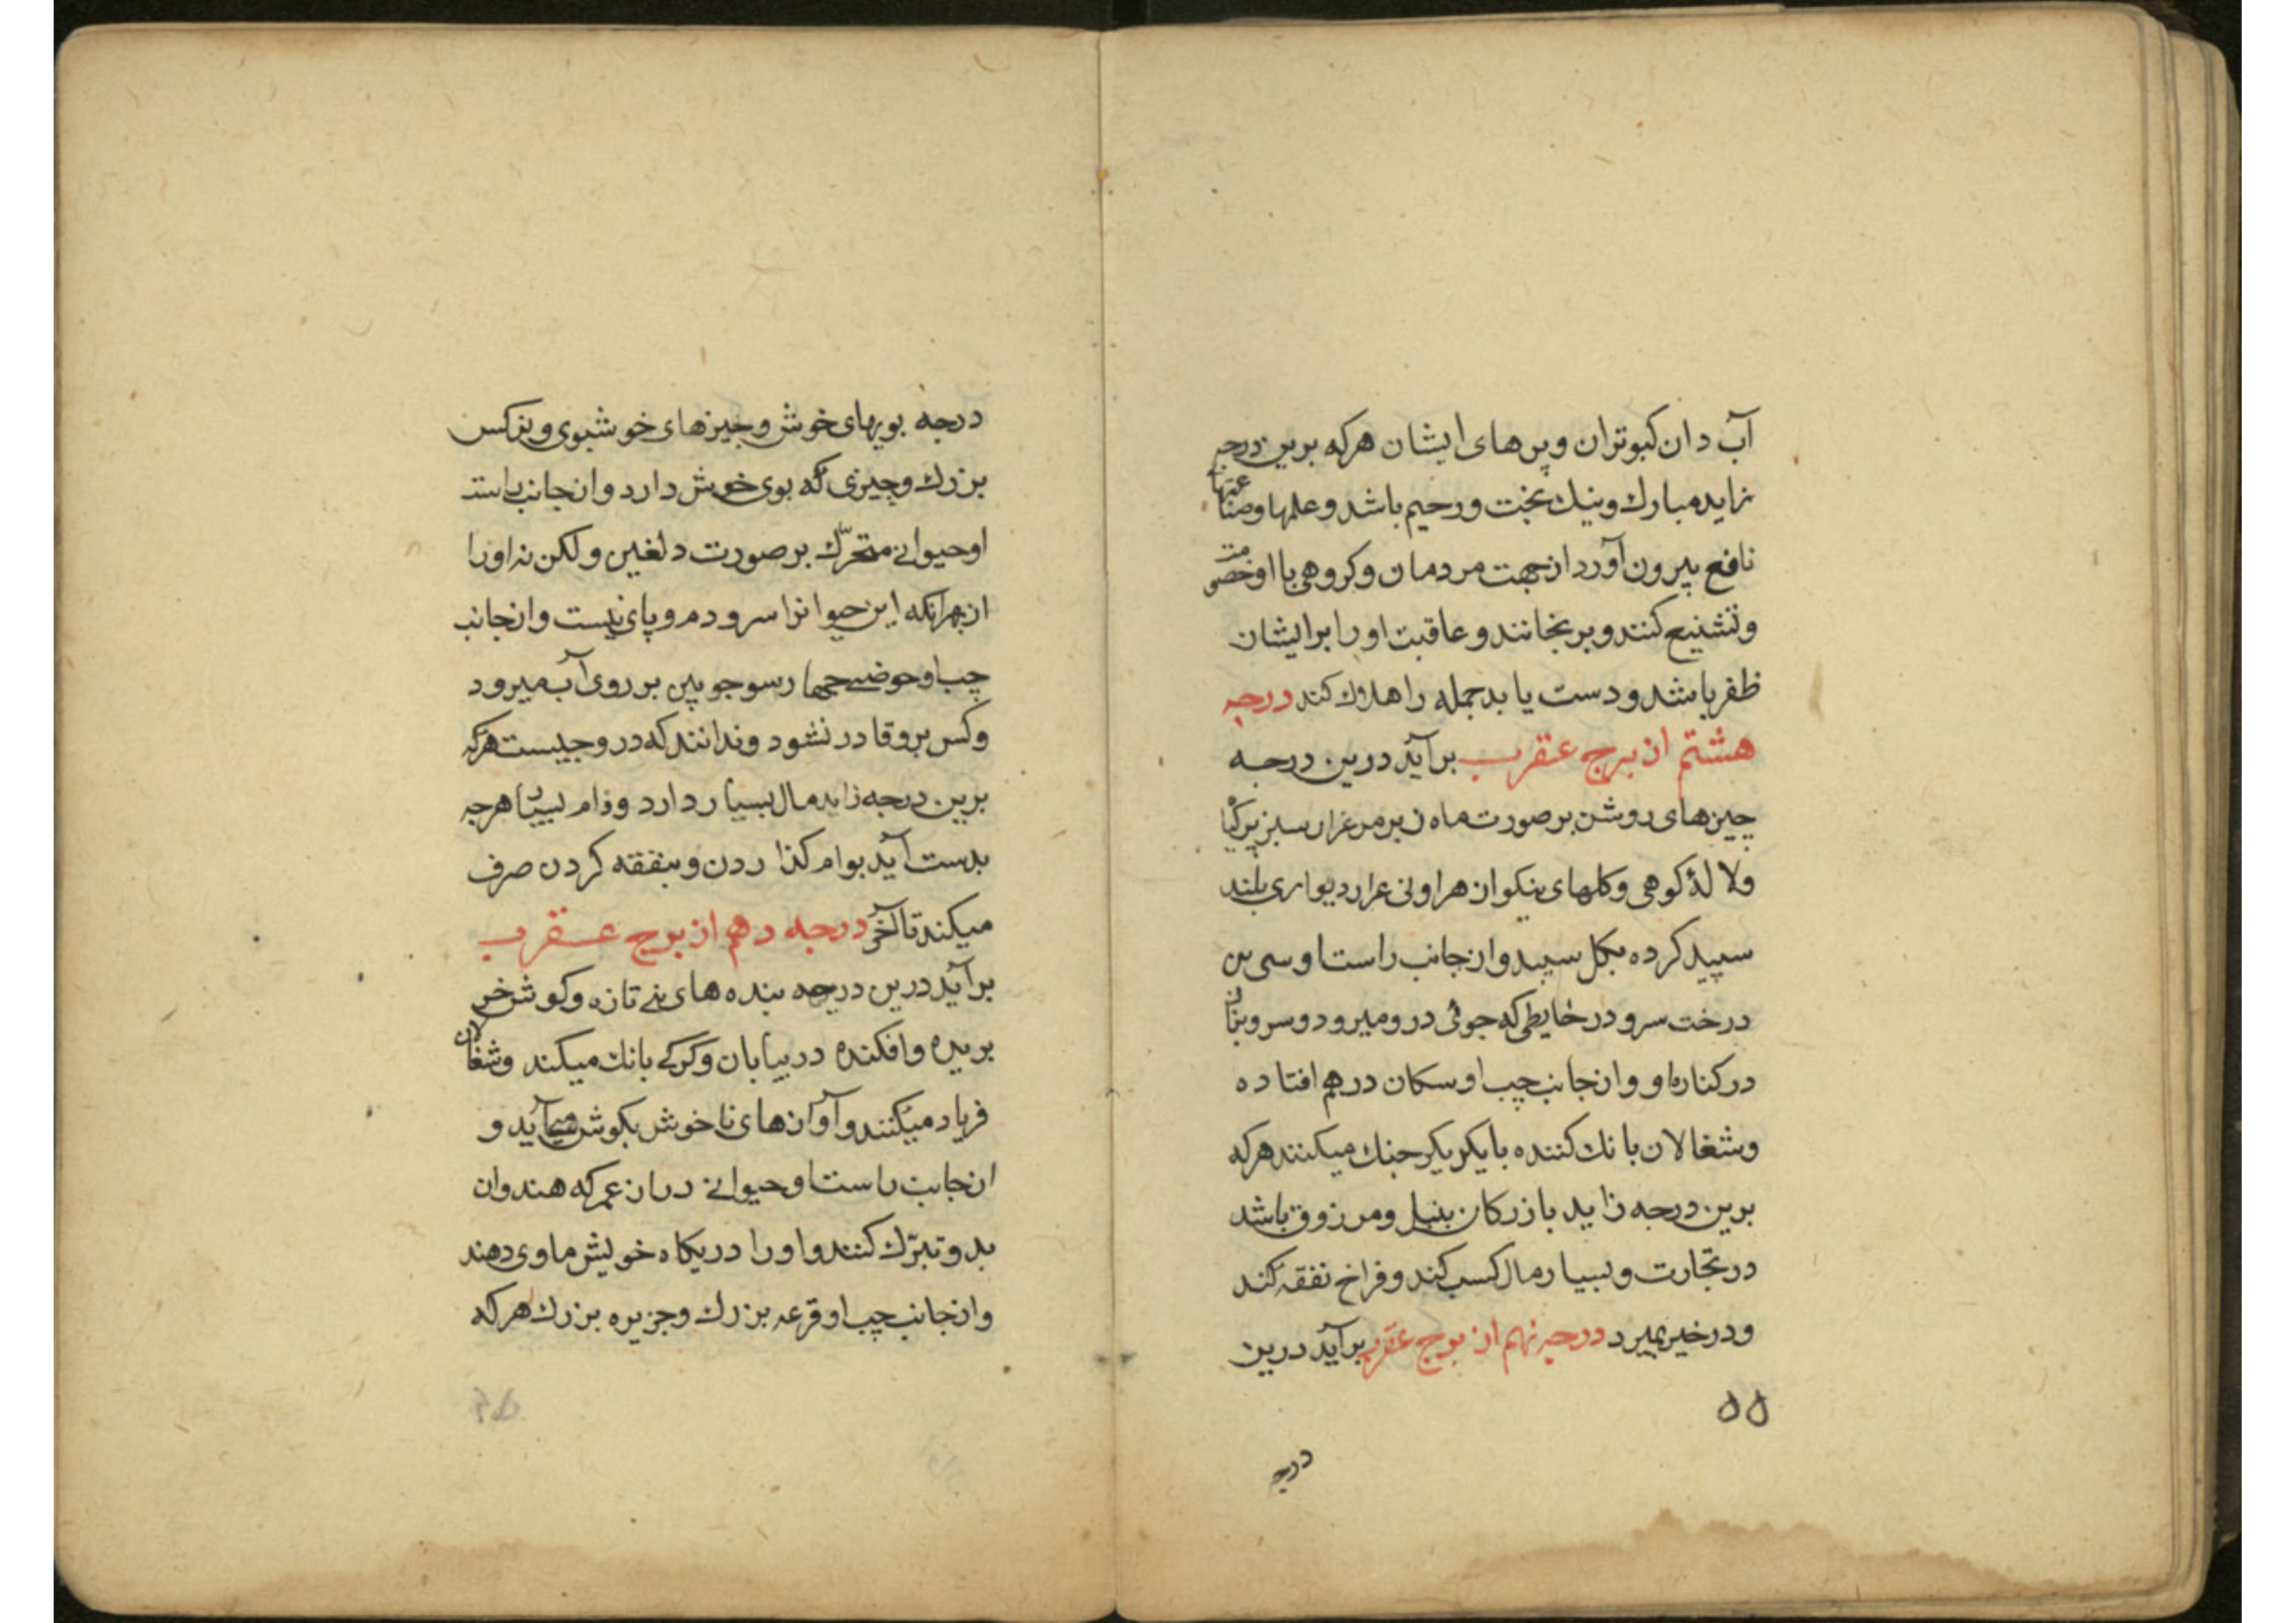 آب دان کبوتران وپرهای ایشان هرکه برین درجه
زاید مبارك ونیك بخت ورحیم باشد وعلمها وصناعتها
نافع بیرون آورد از جهت مردمان وکروهی با او خصومت
وتشنیع کنند وبرنجانند وعاقبت اورا برایشان
ظفر باشد ودست یابد جمله را هلاك کند درجه
هشتم از برج عقرب برآید درین درجه
چیزهای روشن برصورت ماه زبر مرغزار سبز پرکیا
ولالهٔ کوهی وکلهای نیکو از هر اونی عزار دیواری بلند
سپید کرده بکل سپید واز جانب راست او سی بن
درخت سرو در خایطی که جوئی درو میرود وسروبنان
درکناره او واز جانب چپ او سکان درهم افتاده
وشغالان بانك کننده بایکریکر جنك میکنند هرکه
برین درجه زاید بازرکان بنبل ومرزوق باشد
در تجارت وبسیار مال کسب کند وفراخ نفقه کند
ودر خیر بمیرد درجه نهم از برج عقرب برآید درین
۵۵
درجه
درجه بویهای خوش وچیزهای خوشبوی وبنرکس
بزرك وچیزی که بوی خوش دارد واز جانب راست
او حیوانی متحرّك برصورت دلغین ولکن نه اورا
از بهر آنکه این حیوانرا سرودم وپای نیست واز جانب
چپ او حوضی چهارسو چوبین بر روی آب میرود
وکس برو قادر نشود وندانند که درو چیست هرکه
برین درجه زاید مال بسیار دارد ووام بسیار هرچه
بدست آید بوام کذاردن وبنفقه کردن صرف
میکند تا آخر درجه دهم از برج عقرب
برآید درین درجه بنده های نی تازه وکوش خر
بریده وافکنده در بیابان وکرکی بانك میکند وشغالان
فریاد میکنند وآوازهای ناخوش بکوش میآید و
از جانب راست او حیوانی دراز عمر که هندوان
بدو تبرّك کنند واورا در یکاه خویش ماوی دهند
واز جانب چپ او قرعه بزرك وجزیره بزرك هرکه